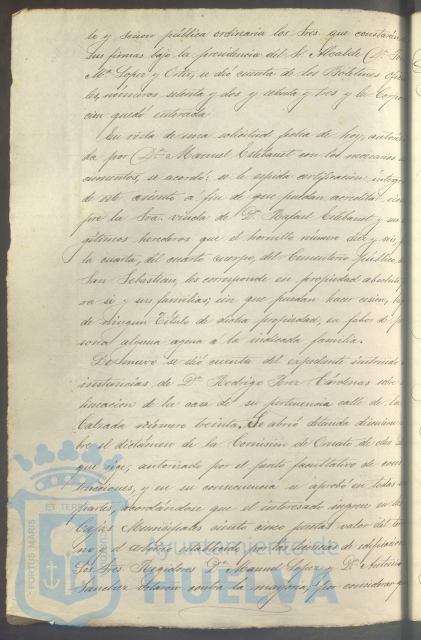 to y sesion pública ordinaria los Sres. que constan
sus firmas, bajo la presidencia del Sr. Alcalde D. José
Mª Lopez y Ortiz, se dió cuenta de los Boletines Ofi
les, números setenta y dos y setenta y tres y la Corpo
cion quedó enterada
En vista de una solicitud fecha de hoy, autori
da por D. Manuel Estebanet con los necesarios
cumentos, se acordó: se le expida certificacion íntegra
de este asiento á fin de que puedan acreditar siem
pre la Sra. viuda de D. Rafael Estebanet y sus
gítimos herederos que el hornillo número diez y seis,
la cuarta, del cuarto cuerpo, del Cementerio público
San Sebastian, les corresponde en propiedad absoluta
ra sí y sus familias; sin que puedan hacer cesion, ba
de ningun Título de dicha propiedad, en favor de
sona alguna agena á la indicada familia.
De nuevo se dió cuenta del expediente instruido
instancias de D. Rodrigo Perez Cárdenas sobre
lineacion de la casa de su pertenencia calle de la
Calzada número treinta. Se abrió detenida discusion
bre el dictámen de la Comision de Ornato de esta
que rige, autorizado por el perito facultativo de cons
trucciones, y en su consecuencia se aprobó en todas
partes, acordándose que el interesado ingrese en las
Cajas Municipales ciento cinco pesetas valor del terre
no y el arbitrio establecido por las licencias de edificacion
Los Sres. Regidores D. Manuel Lopez y D. Antonio
Sanchez votaron contra la mayoría, por considerar
PORTUS MARIS
ET TERRE
Ayuntamiento de
HUELVA